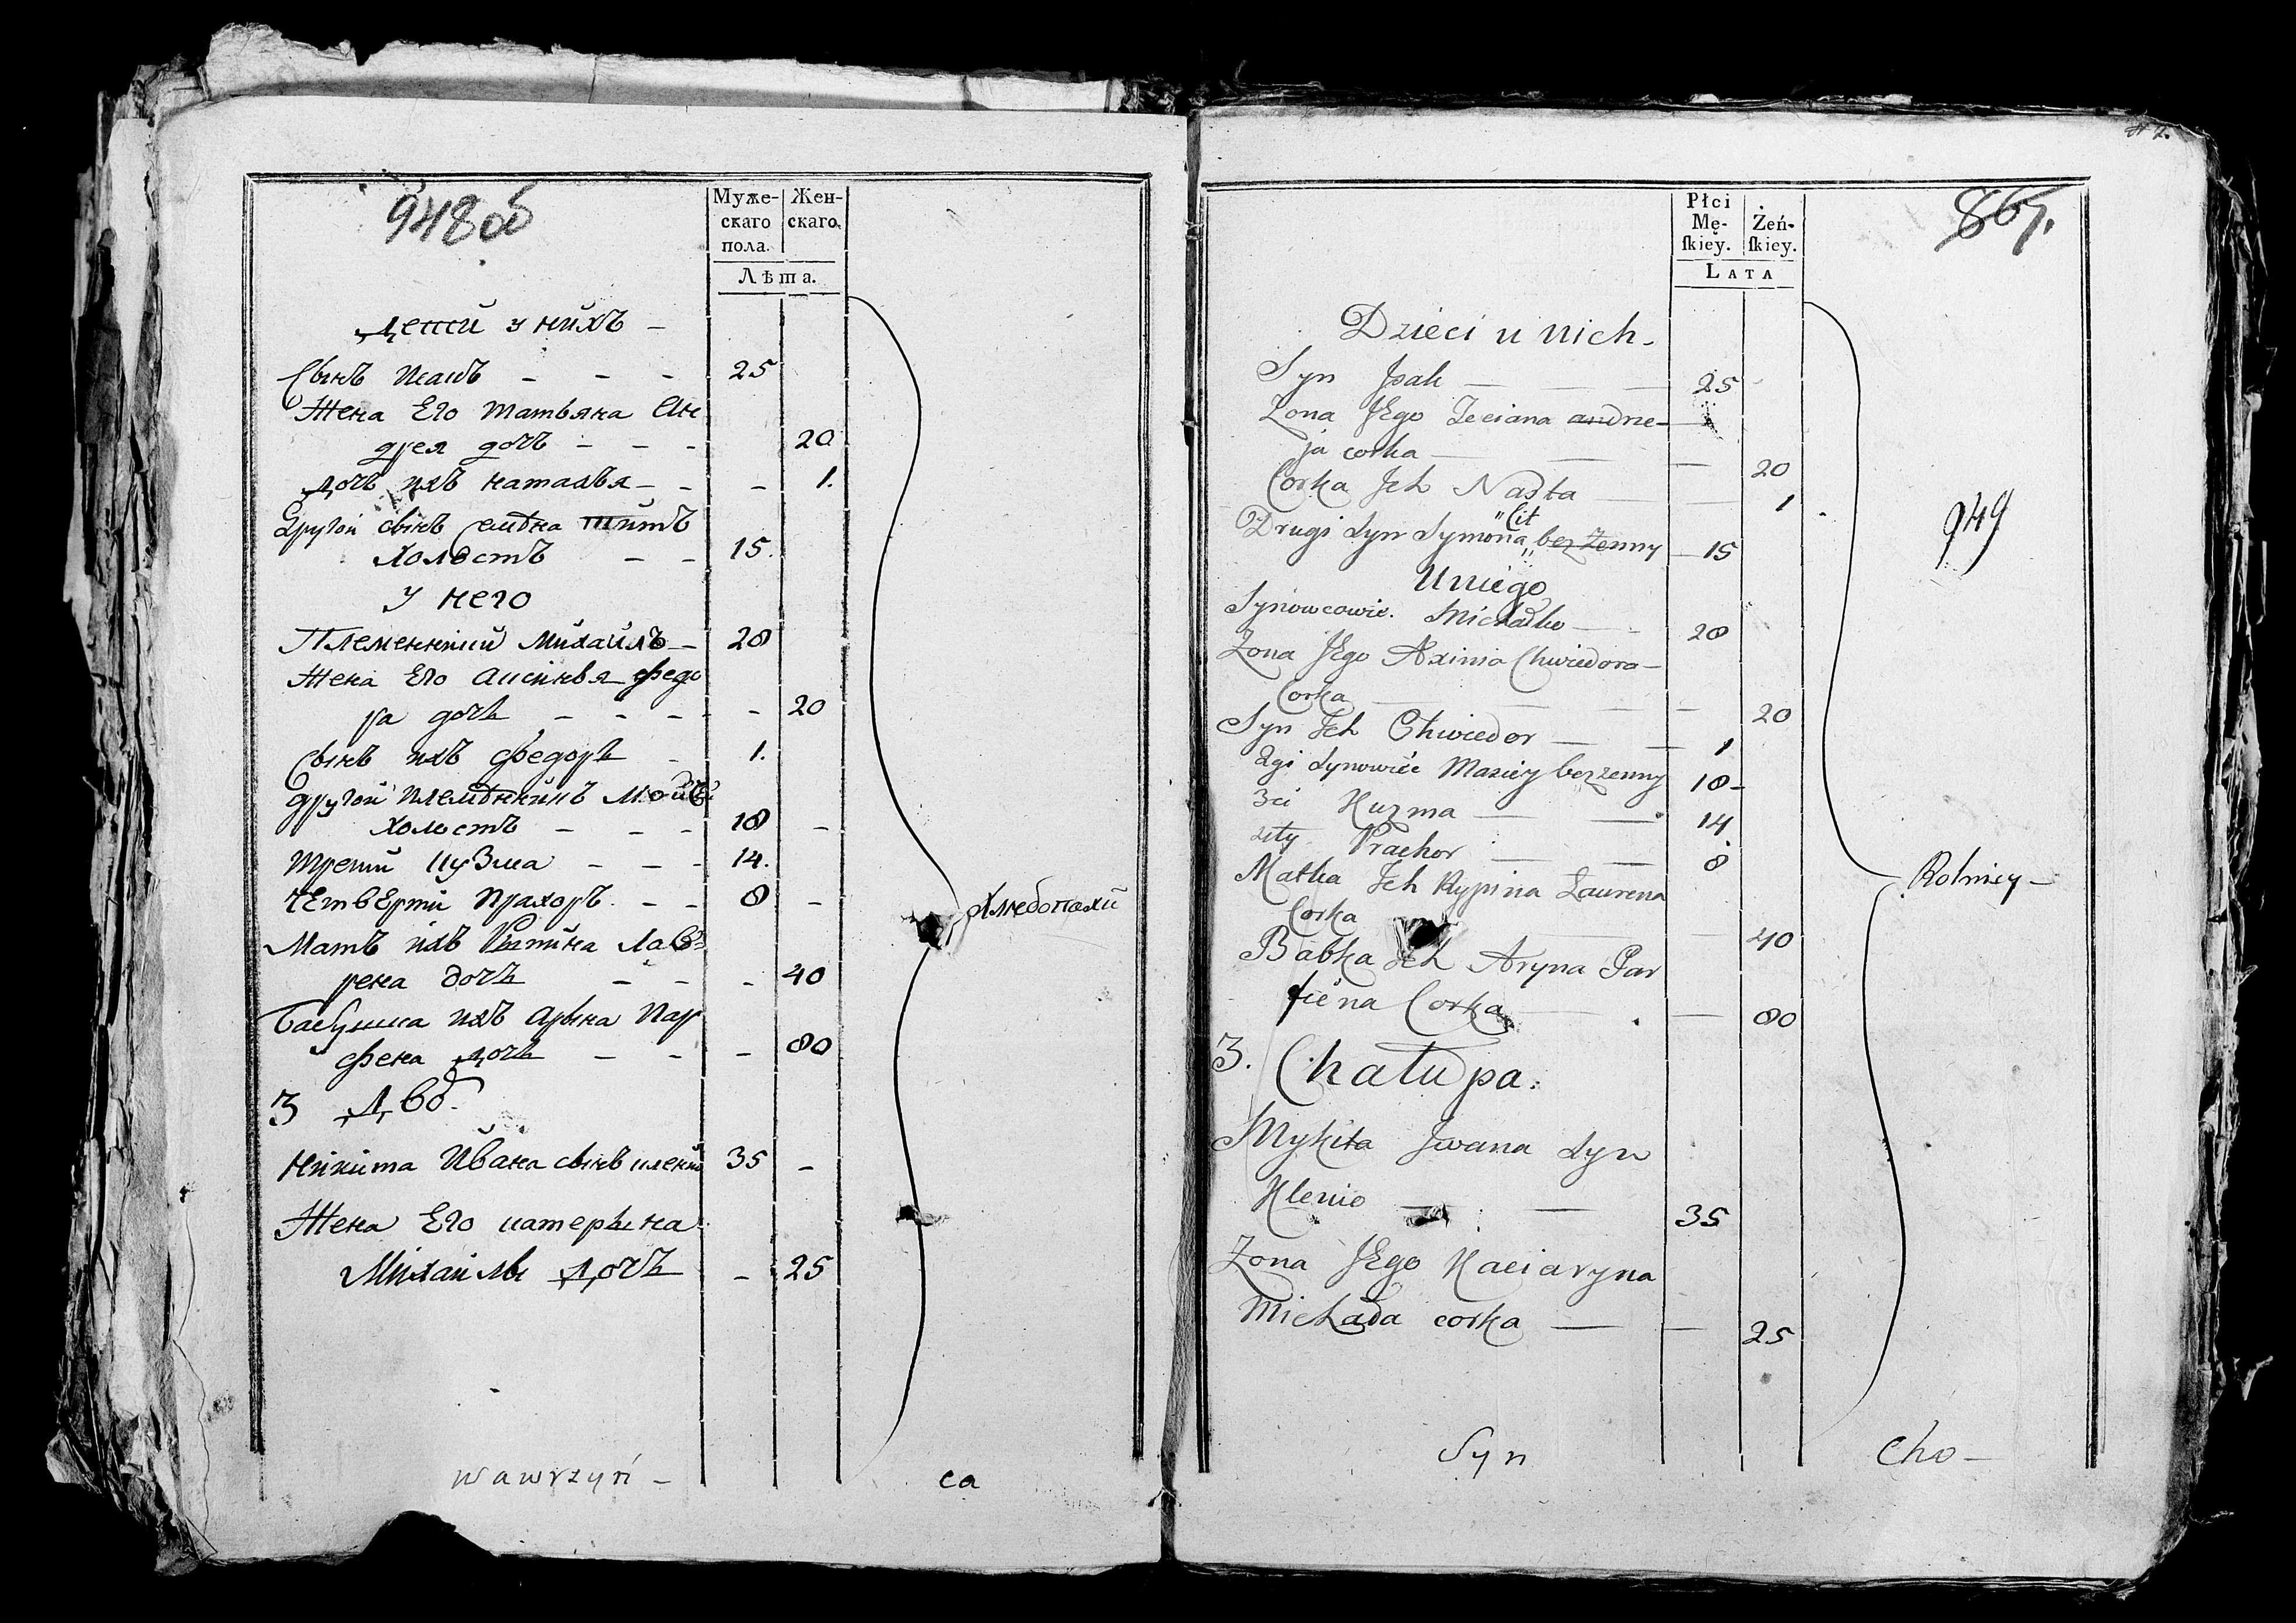 948 об
Муже-
скаго
пола.
Жен-
скаго.
Лѣта.
Дети у нихъ –
Сынъ Исакъ – – – 25
Жена Его татьяна Ан
дрея дочь – – – 20
Дочь ихъ наталья – – – 1.
Другой сынъ Семена титъ
Холостъ – – 15.
У него
Племенники Михайлъ – 28
Жена Его Аксинья федо
ра дочь – – – – 20
Сынъ ихъ федоръ – 1.
другой племѣнникъ
холостъ – – – 18 –
третий Кузма – – – 14.
четвЕртй прахоръ – – 8 –
Мать ихъ Крыпина Лав
рена дочь – – – 40
Бабушка ихъ Арына пар
фена дочь – – – 80
Хлебопахи
3 Дво.
никита Ивана сынъ кленио 35 –
Жена Его катерына
Михайлы Дочь – 25
wawrzyń – ca
№ 2.
867.
Płci
Mę-
ſkiey.
Żeń-
ſkiey.
Lata
Dzieci u nich.
Syn Jsak — — — 25
Zona JEgo Teciana andrze-
ja corka — — — 20
Corka Jch Nasta — — 1
949
"Cit
Drugi Syn Symona „ bezżenny — 15
U niego
Synowcowie. Michałko — — 28
Zona JEgo Axinia Chwiedora —
Corka — — — 20
Syn Jch Chwiedor — — 1
2gi Synowiec Maziey bezzenny 18 –
3ci Kuzma — — 14
4ty Prachor — — 8
Rolnicy —
Matka Jch Krypina Laurena
Corka — — 40
Babka Jch Aryna Par
fiena Corka — — 80
3. Chałupa.
Mykita Jwana Syn
Klenio — — 35
Zona JEgo Kaciaryna
Michała corka — — 25
Syn Cho –